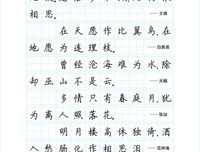 相思。
——王维
在天愿作比翼鸟,在
地愿为连理枝。
——白居易
曾经沧海难为水,除
却巫山不是云。
——元稹
多情只有春庭月,犹
为离人照落花。
——张泌
明月楼高休独倚,酒
入愁肠化作相思泪。
——范仲淹